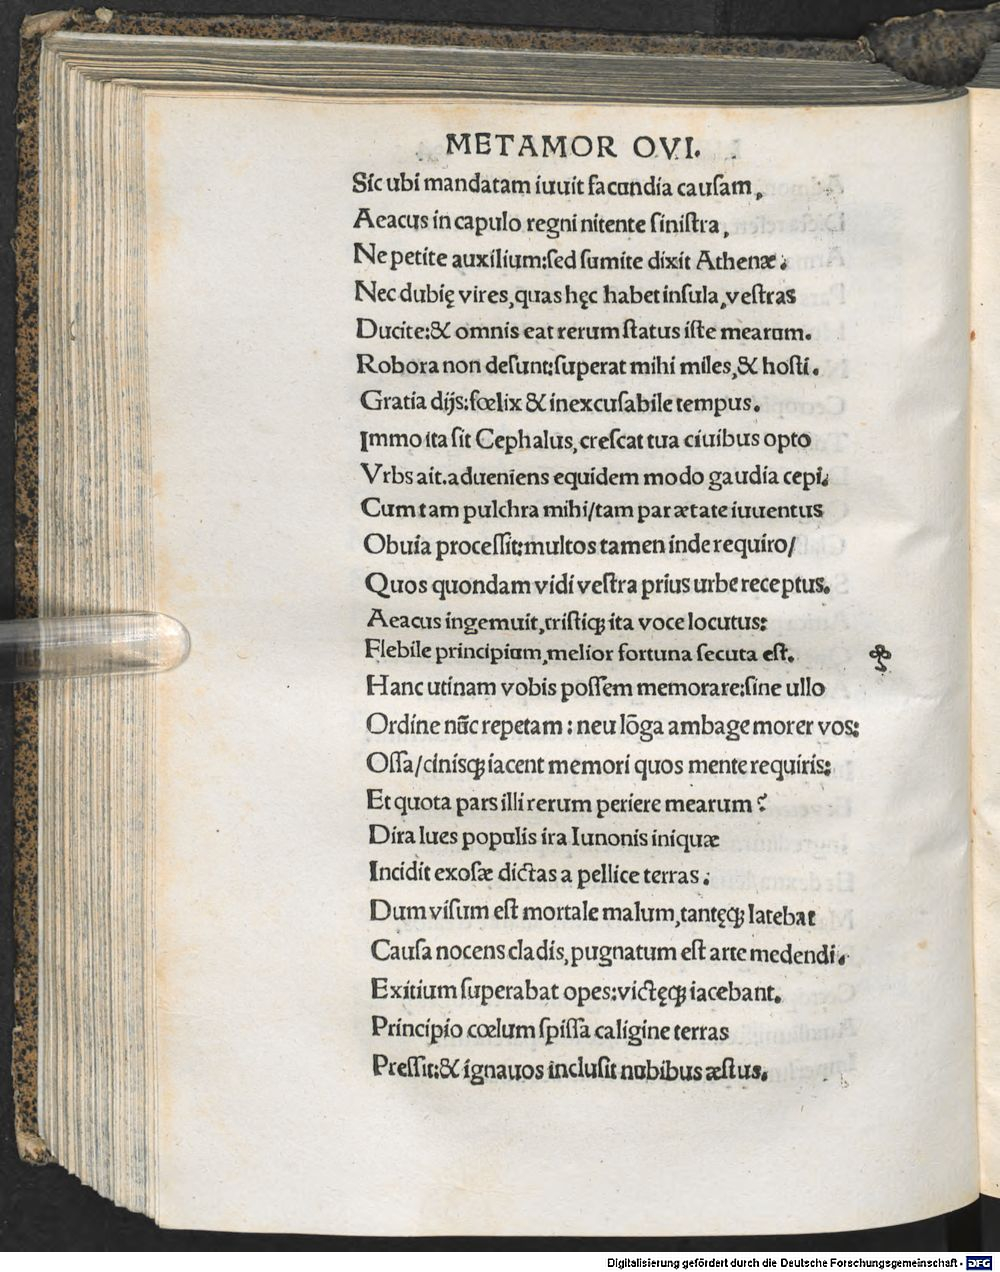 METAMOR OVI.
Sic ubi mandatam iuuit facundia causam,
Aeacus in capulo regni nitente sinistra,
Ne petite auxilium:sed sumite dixit Athenæ:
Nec dubię vires,quas hęc habet insula,vestras
Ducite:& omnis eat rerum status iste mearum.
Robora non desunt:superat mihi miles,& hosti.
Gratia dijs:fœlix & inexcusabile tempus.
Immo ita sit Cephalus,crescat tua ciuibus opto
Vrbs ait.adueniens equidem modo gaudia cepi:
Cum tam pulchra mihi/tam par ætate iuuentus
Obuia processit:multos tamen inde requiro/
Quos quondam vidi vestra prius urbe receptus.
Aeacus ingemuit,tristiqꝫ ita voce locutus:
Flebile principium,melior fortuna secuta est.
Hanc utinam vobis possem memorare:sine ullo
Ordine nūc repetam: neu lōga ambage morer vos:
Ossa/cinisqꝫ iacent memori quos mente requiris:
Et quota pars illi rerum periere mearum?
Dira lues populis ira Iunonis iniquæ
Incidit exosæ dictas a pellice terras:
Dum visum est mortale malum,tantęqꝫ latebat
Causa nocens cladis,pugnatum est arte medendi.
Exitium superabat opes:victęqꝫ iacebant.
Principio cœlum spissa caligine terras
Pressit:& ignauos inclusit nubibus æstus.
Digitalisierung gefördert durch die Deutsche Forschungsgemeinschaft - DFG